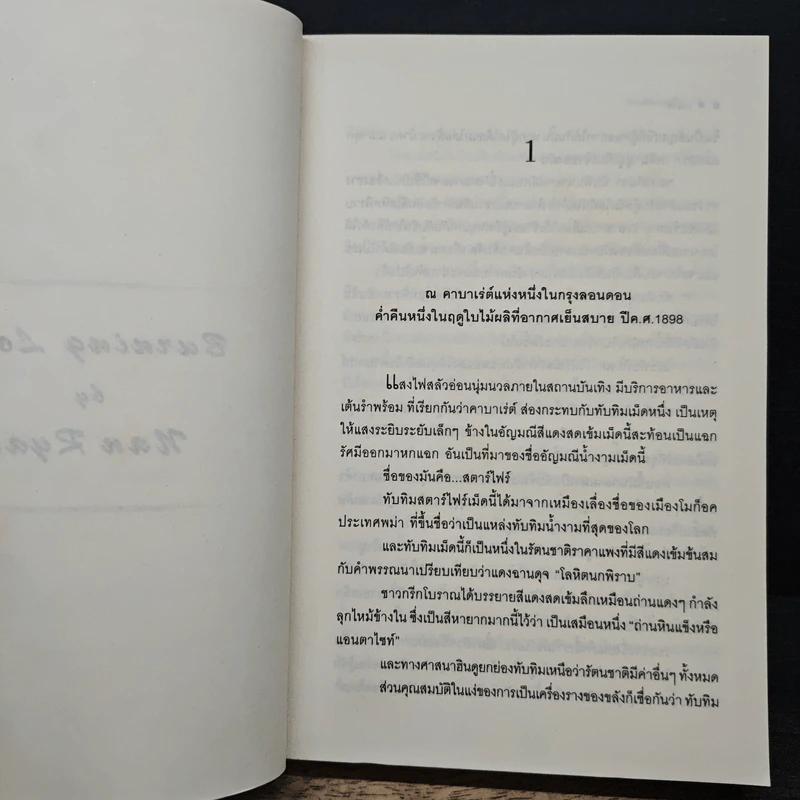 Burning Lo
by
Nan Rya
1
ณ คาบาเร่ต์แห่งหนึ่งในกรุงลอนดอน
ค่ำคืนหนึ่งในฤดูใบไม้ผลิที่อากาศเย็นสบาย ปีค.ศ.1898
แสงไฟสลัวอ่อนนุ่มนวลภายในสถานบันเทิง มีบริการอาหารและ
เต้นรำพร้อม ที่เรียกกันว่าคาบาเร่ต์ ส่องกระทบกับทับทิมเม็ดหนึ่ง เป็นเหตุ
ให้แสงระยิบระยับเล็กๆ ข้างในอัญมณีสีแดงสดเข้มเม็ดนี้สะท้อนเป็นแฉก
รัศมีออกมาหกแฉก อันเป็นที่มาของชื่ออัญมณีน้ำงามเม็ดนี้
ชื่อของมันคือ...สตาร์ไฟร์
ทับทิมสตาร์ไฟร์เม็ดนี้ได้มาจากเหมืองเลื่องชื่อของเมืองโมก็อค
ประเทศพม่า ที่ขึ้นชื่อว่าเป็นแหล่งทับทิมน้ำงามที่สุดของโลก
และทับทิมเม็ดนี้ก็เป็นหนึ่งในรัตนชาติราคาแพงที่มีสีแดงเข้มข้นสม
กับคำพรรณนาเปรียบเทียบว่าแดงฉานดุจ “โลหิตนกพิราบ”
ชาวกรีกโบราณได้บรรยายสีแดงสดเข้มลึกเหมือนถ่านแดงๆ กำลัง
ลุกไหม้ข้างใน ซึ่งเป็นสีหายากมากนี้ไว้ว่า เป็นเสมือนหนึ่ง “ถ่านหินแข็งหรือ
แอนตาไซท์”
และทางศาสนาฮินดูยกย่องทับทิมเหนือว่ารัตนชาติมีค่าอื่นๆ ทั้งหมด
ส่วนคุณสมบัติในแง่ของการเป็นเครื่องรางของขลังก็เชื่อกันว่า ทับทิม